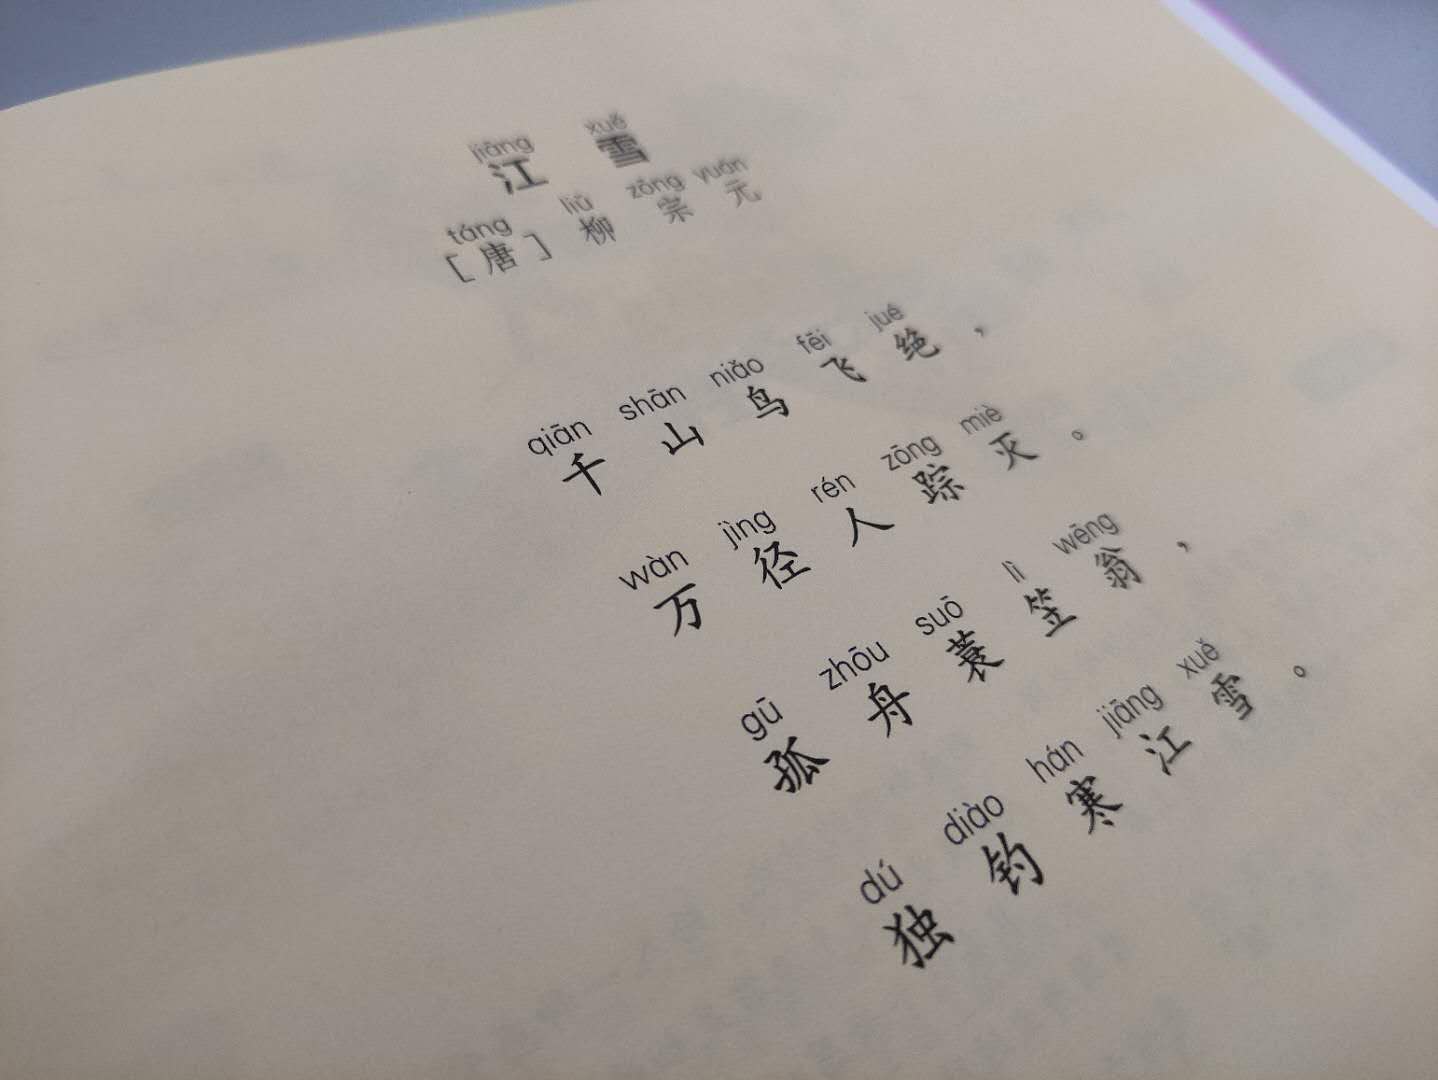 jiāng xuě
江 雪
táng liǔ zōng yuán
[唐] 柳 宗 元
qiān shān niǎo fēi jué
千 山 鸟 飞 绝，
wàn jìng rén zōng miè
万 径 人 踪 灭。
gū zhōu suō lì wēng
孤 舟 蓑 笠 翁，
dú diào hán jiāng xuě
独 钓 寒 江 雪。